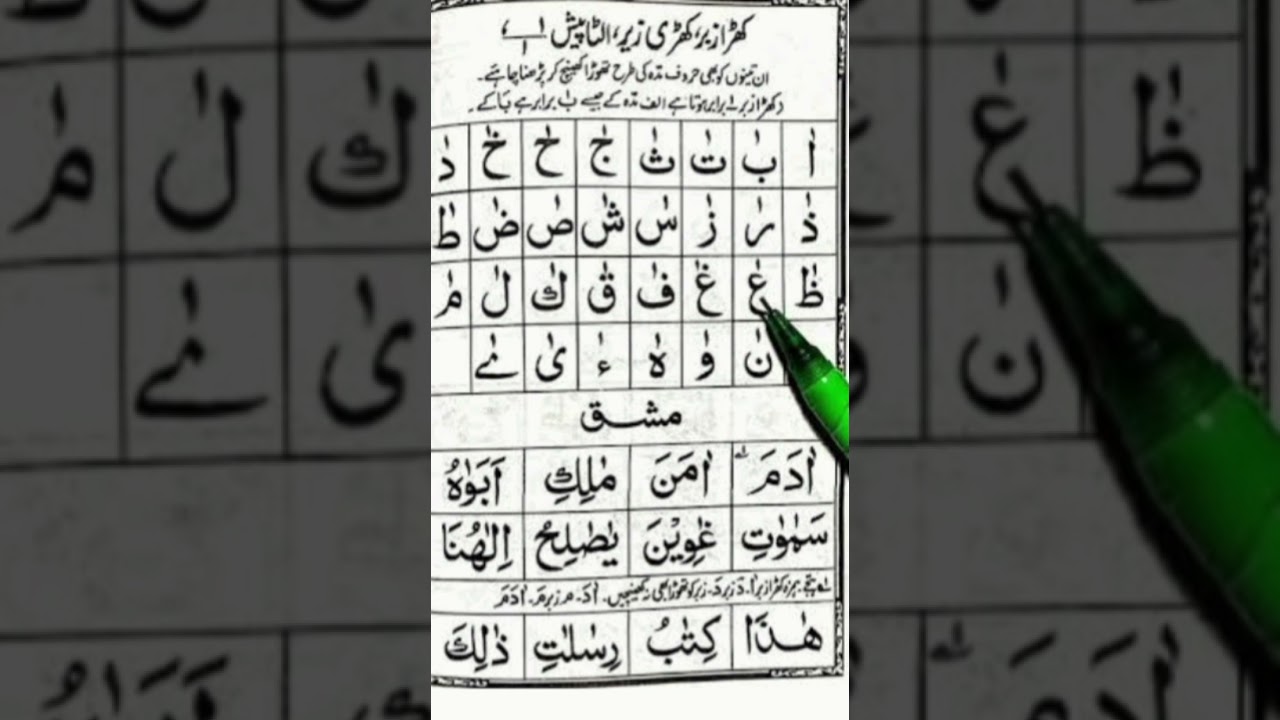 کھڑا زبر، کھڑی زیر، الٹا پیش
ان تینوں کو بھی حروف مدہ کی طرح تھوڑا کھینچ کر پڑھنا چاہئے۔
کھڑا زبر برابر ہوتا ہے الف مدہ کے جیسے بٰ برابر ہے بَا کے۔
اٰ بٰ تٰ ثٰ جٰ حٰ خٰ دٰ
ذٰ رٰ زٰ سٰ شٰ صٰ ضٰ طٰ
ظٰ عٰ غٰ فٰ قٰ كٰ لٰ مٰ
نٰ وٰ هٰ ءٰ یٰ ےٰ
مشق
اٰدَمَ اٰمَنَ مٰلِكِ اَبَوٰهُ
سَمٰوٰتِ غٰوِيْنَ يٰصٰلِحُ اِلٰهُنَا
هٰذَا كِتٰبُ رِسٰلٰتِ ذٰلِكَ